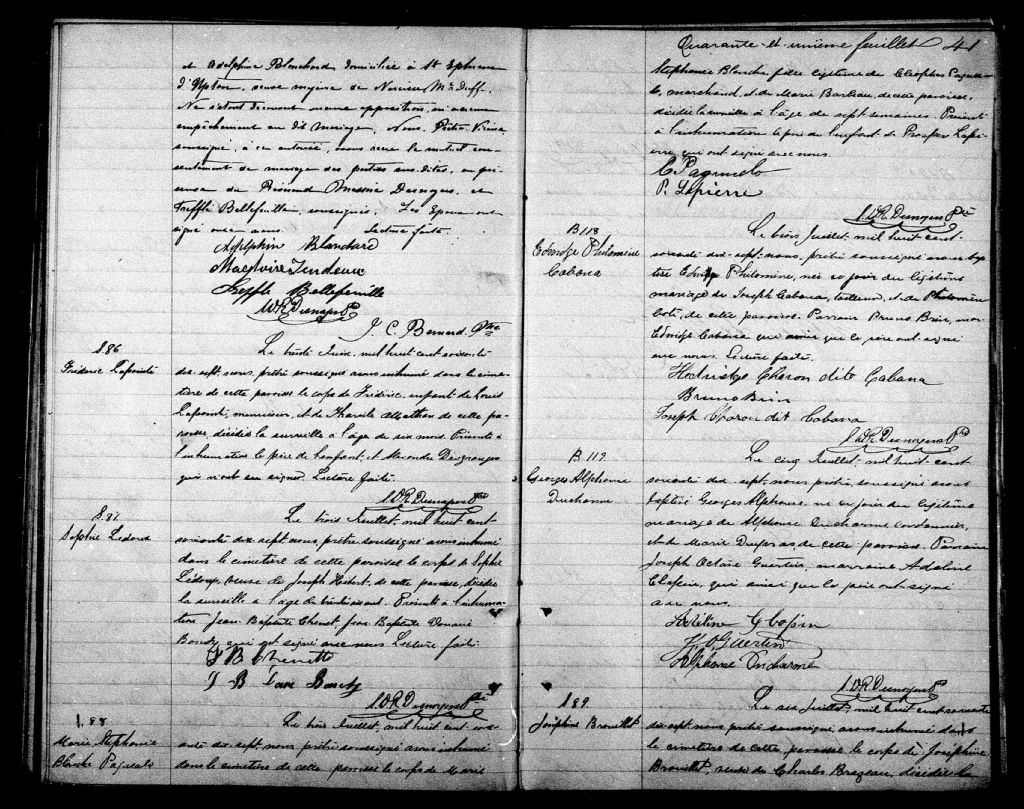 et Adolphine Blanchard domiciliée à St Ephrem
d'Upton, veuve majeure de Narcisse McDuff.
Ne s'étant découvert aucune opposition, ni aucun
empêchement au dit mariage, Nous, Prêtre Vicaire
soussigné, à ce autorisé, avons reçu le mutuel con-
sentement de mariage des parties susdites, en pré-
sence de Messire Desnoyers, et
Treffle Bellefeuille, soussignés. Les Epoux ont
signé avec nous. Lecture faite.
Adelphin Blanchard
Treffle Bellefeuille
I.D.R. Desnoyers Ptre
J. C. Bernard. Ptre
S.86
Fréderic Lapointe
Le trente Juin, mil huit cent soixante
dix-sept, nous, prêtre soussigné avons inhumé dans le cime-
tière de cette paroisse le corps de Fréderic, enfant de Louis
Lapointe, menuisier, et de Tharsile Mathon de cette pa-
roisse, décédé la surveille à l'âge de six mois. Présents à
l'inhumation le père de l'enfant, et Desgranges
qui n'ont su signer. Lecture faite.
I.D.R. Desnoyers Ptre
S.87
Sophie Ledoux
Le trois Juillet, mil huit cent
soixante dix-sept nous, prêtre soussigné avons inhumé
dans le cimetière de cette paroisse le corps de Sophie
Ledoux, veuve de Joseph Hébert, de cette paroisse, décédée
la surveille à l'âge de ans. Présents à l'inhuma-
tion Jean Baptiste Chenet, Jean Baptiste
qui ont signé avec nous. Lecture faite.
J B Chenette
J-B
I.D.R. Desnoyers Ptre
S.88
Marie Stephanie
Blanche Paquette
Le trois Juillet, mil huit cent soi-
xante dix-sept nous prêtre soussigné avons inhumé
dans le cimetière de cette paroisse le corps de Marie
Quarante-et-unième feuillet 41
Stephanie Blanche, fille légitime de Cléophas
marchand, et de Marie Barbeau, de cette paroisse,
décédée la veille à l'âge de sept semaines. Présents
à l'inhumation le père de l'enfant et Prosper Lapi-
erre, qui ont signé avec nous.
P. Lapierre
I.D.R. Desnoyers Ptre
B 118
Edwidge Philomène
Cabana
Le trois Juillet, mil huit cent
soixante dix-sept, nous, prêtre soussigné avons bap-
tisé Edwidge Philomène, née ce jour du légitime
mariage de Joseph Cabana, tailleur, et de Philomène
Coté, de cette paroisse. Parrain Bruno Brin, mar.
Edwidge Cabana qui ainsi que le père ont signé
avec nous. Lecture faite.
Hedwidge Charon dite Cabana
Bruno Brin
Joseph Charon dit Cabana
I.D.R. Desnoyers Ptre
B 119
Georges Alphonse
Ducharme
Le cinq Juillet, mil huit cent
soixante dix-sept, nous, prêtre, soussigné avons
baptisé Georges Alphonse, né ce jour du légitime
mariage de Alphonse Ducharme cordonnier,
et de Marie Dupras de cette paroisse. Parrain
Joseph Octave Guertin, marraine Adeline
qui ainsi que le père ont signé
avec nous.
J. O Guertin
Alphonse Ducharme
I.D.R. Desnoyers Ptre
S 89
Josephine Brouillet
Le six Juillet, mil huit cent soixante
dix-sept nous prêtre soussigné avons inhumé dans
le cimetière de cette paroisse le corps de Josephine
Brouillet, veuve de Charles Brazeau, décédée la